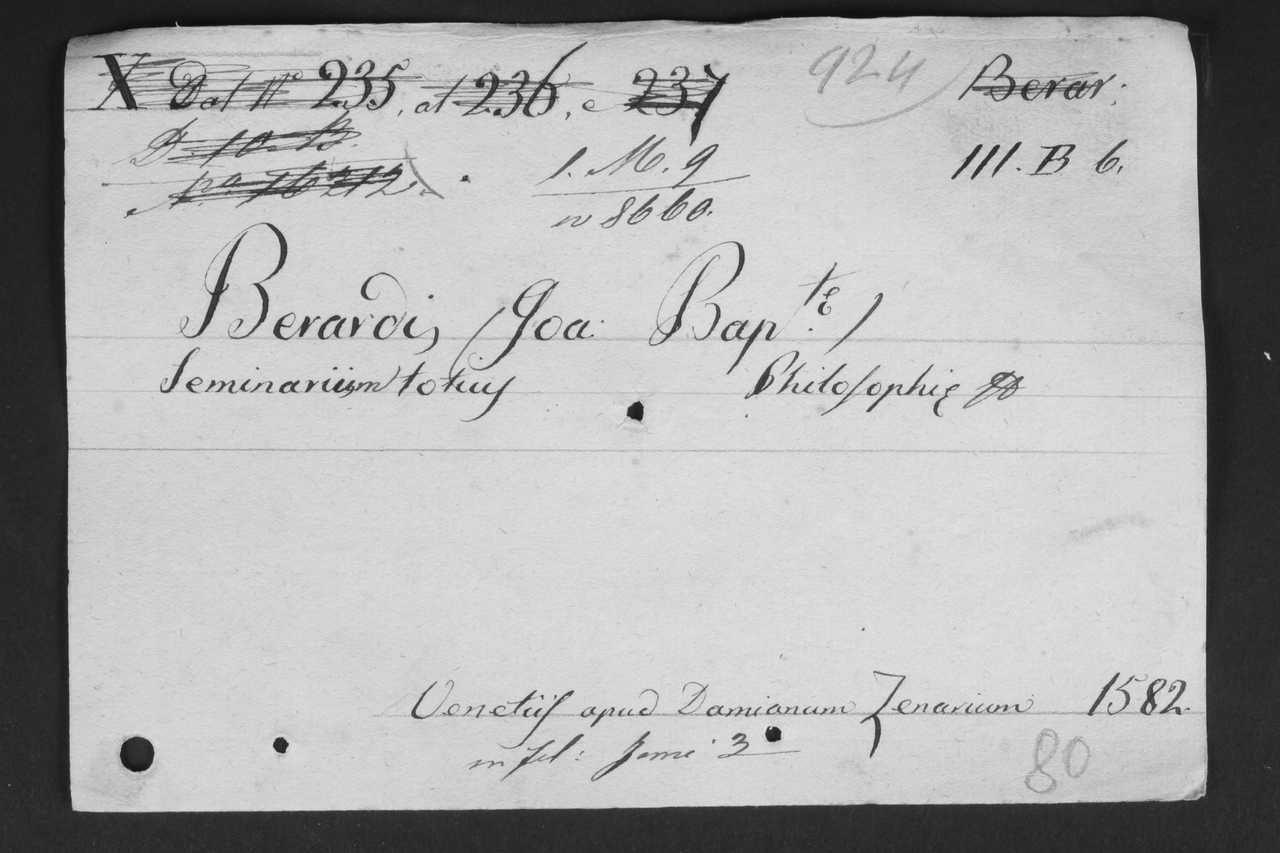 X Dal N° 235, al 236, e 237
924
Berar:
D. 10. B.
N° 16212.
1. M. 9
n 8660.
111. B 6.
Berardi, (Joa: Bap.te)
Seminarium totius Philosophię
Venetiis apud Damianum Zenarium 1582.
in fol: Tomi 3
80